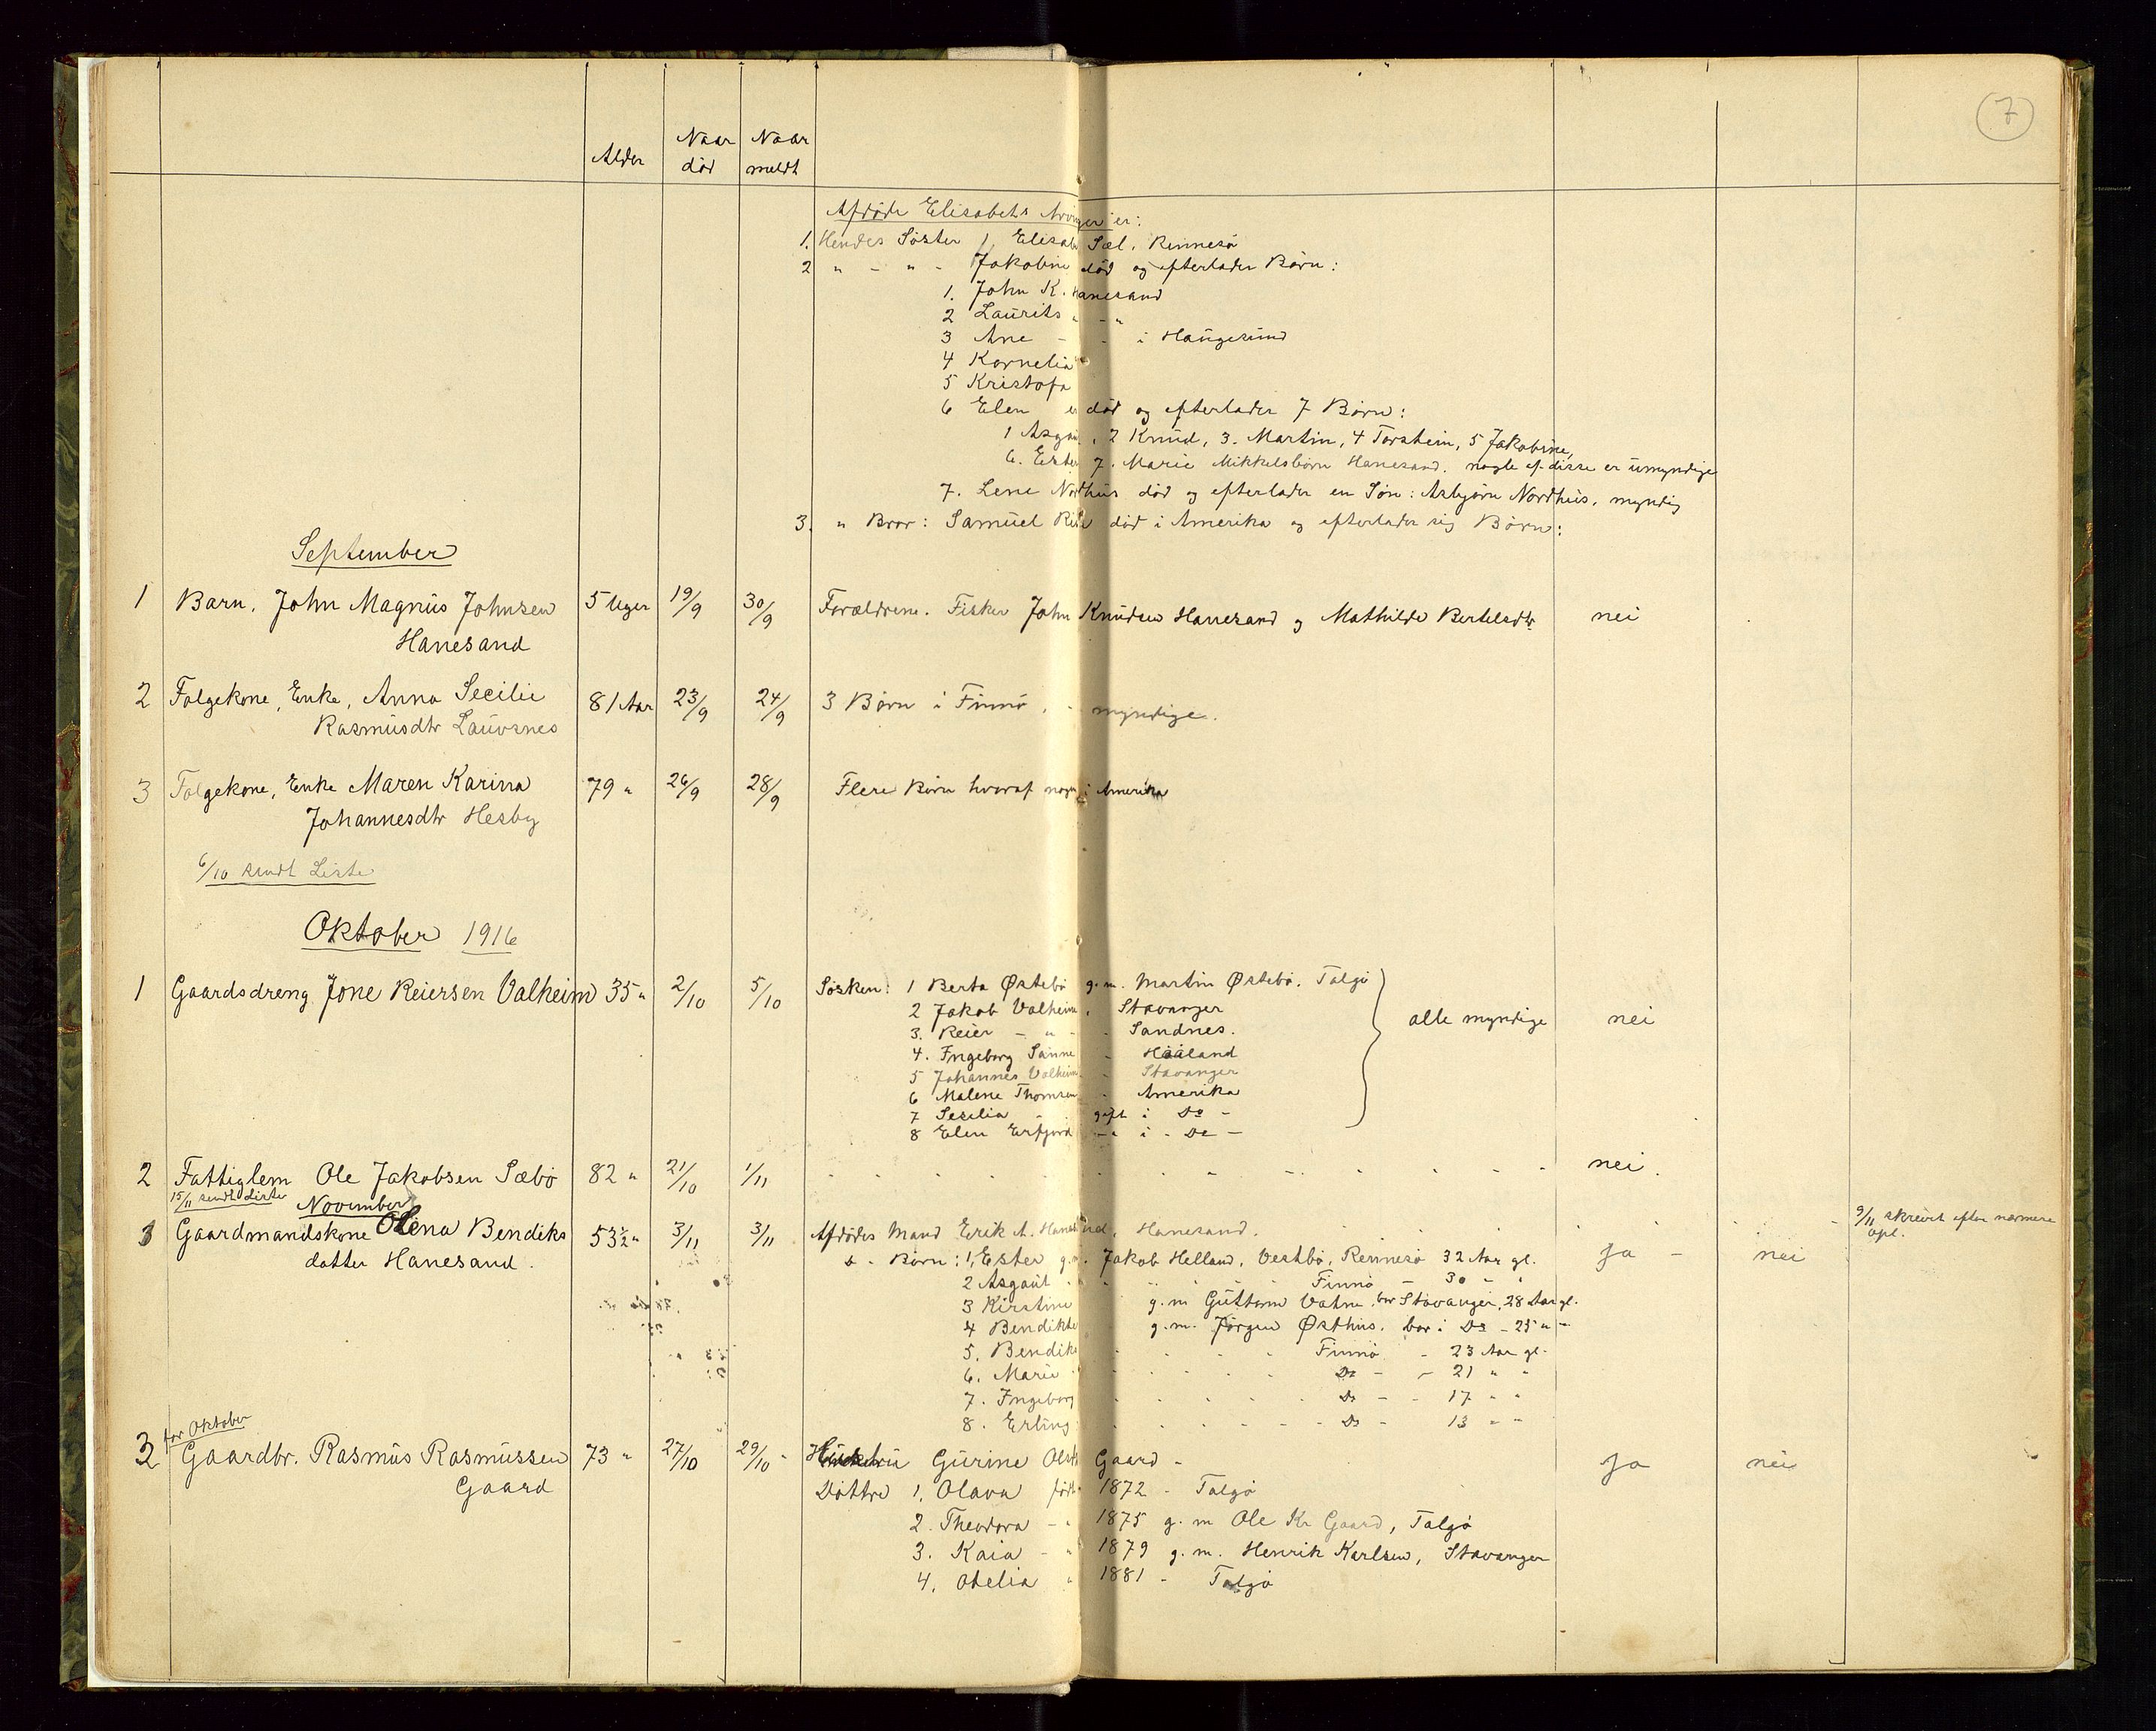 7
Alder
Naar død
Naar meldt
Afdøde Elisabets Arvinger er:
1. Hendes Søster 1, Elisabe Sæl, Rennesø
2 " - " - Jakobine død og efterlader Børn:
1. John K. Hanesand
2 Laurits " - "
3 Ane - - i Haugesund
4 Kornelia
5 Kristofa
6 Elen er død og efterlader 7 Børn:
1 Asgaut, 2 Knud, 3. Martin, 4 Torstein, 5 Jakobine,
6. Ester 7. Marie Mikkelsbørn Hanesand. nogle af disse er umyndige
7. Lene Nordhus død og efterlader en Søn: Asbjørn Nordhus, myndig
3. " Bror: Samuel død i Amerika og efterlader sig Børn:
September
1 Barn, John Magnus Johnsen 5 Uger 19/9 30/9 Forældrene. Fisker John Knudsen Hanesand og Mathilde Bertelsdtr nei
Hanesand
2 Folgekone, Enke, Anna Secilie 81 Aar 23/9 24/9 3 Børn i Finnø, - myndige.
Rasmusdtr Lauvsnes
3 Folgekone, Enke Maren Karina 79 " 26/9 28/9 Flere Børn hvoraf nogle i Amerika
Johannesdtr Hesby
6/10 sendt Liste
Oktober 1916
1 Gaardsdreng Jone Reiersen Valheim 35 " 2/10 5/10 Søsken: 1 Berta Østebø g.m. Martin Østebø, Talgø
2 Jakob Valheim, Stavanger alle myndige nei
3. Reier - " - Sandnes.
4. Ingeborg Sanne - Haaland
5 Johannes Valheim - Stavanger
6 Malene Thomsen - Amerika
7 Sesilia - gift i Do -
8 Elen Erfjord - " i - Do -
2 Fattiglem Ole Jakobsen Sæbø 82 " 21/10 1/11 nei.
15/11 sendt Liste
November
1 Gaardmandskone Olena Bendiks 53½ " 3/11 3/11 Afdødes Mand Erik A. Hanesand, Hanesand. 9/11 skrevet efter nærmere opl.
datter Hanesand. " - Børn: 1, Ester g.m. Jakob Helland, Vestbø, Rennesø 32 Aar gl. ja - nei
2 Asgaut - Finnø - 30 - "
3 Kirstine g.m Guttorm Vatne, bor Stavanger, 28 Aar gl.
4 Bendikte g.m. Jørgen Østhus. bor i Do - 25 " -
5. Bendik Finnø - 23 Aar gl.
6. Marie Do - - 21 " "
7. Ingeborg Do - - 17 - "
8. Erling Do - 13 - "
for Oktober
3 Gaardbr. Rasmus Rasmussen 73 " 27/10 29/10 - Hustru Gurine Olsdtr Gaard - ja nei
Gaard Døttre 1, Olava født 1872 - Talgø
2. Theodora - " 1875 g. m Ole Kr Gaard, Talgø
3. Kaia - " 1879 g. m. Henrik Karlsen, Stavanger
4. Otelia " 1881 - Talgø